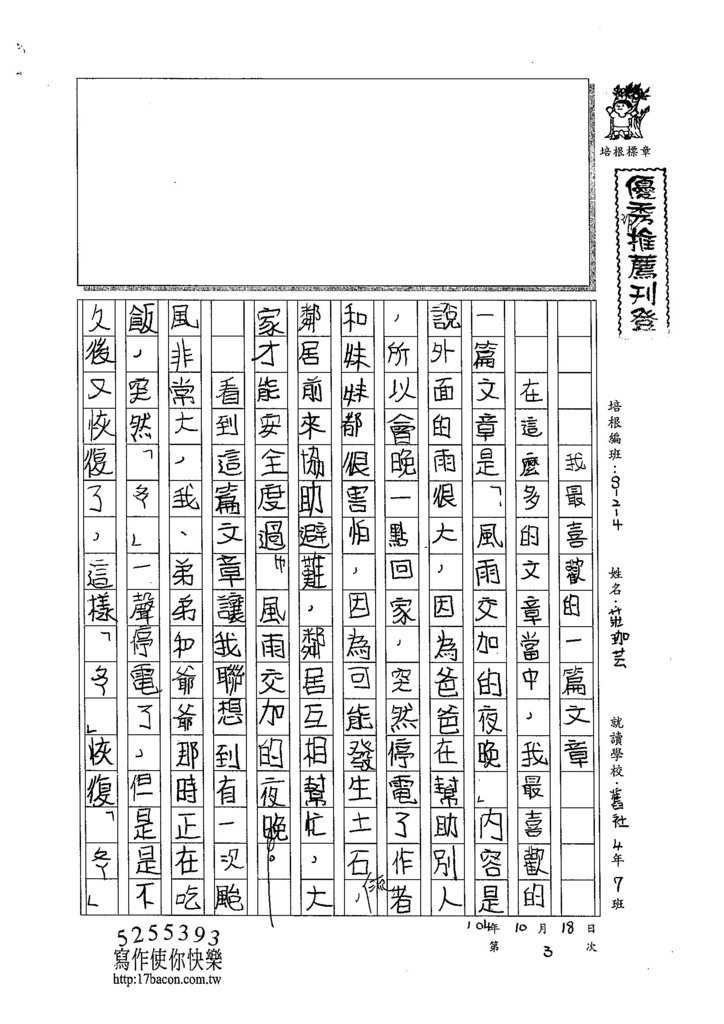 培根標章
優秀推薦刊登
培根編班：
就讀學校：舊社4年7班
104年10月18日
第3次
我最喜歡的一篇文章
在這麼多的文章當中，我最喜歡的
一篇文章是「風雨交加的夜晚」內容是
說外面的雨很大，因為爸爸在幫助別人
，所以會晚一點回家，突然停電了作者
和妹妹都很害怕，因為可能發生土石流，
鄰居前來協助避難，鄰居互相幫忙，大
家才能安全度過風雨交加的夜晚。
看到這篇文章讓我聯想到有一次颱
風非常大，我、弟弟和爺爺那時正在吃
飯，突然「ㄉㄥ」一聲停電了，但是是不
久後又恢復了，這樣「ㄉㄥ」恢復「ㄉㄥ」
5255393
寫作使你快樂
http:17bacon.com.tw